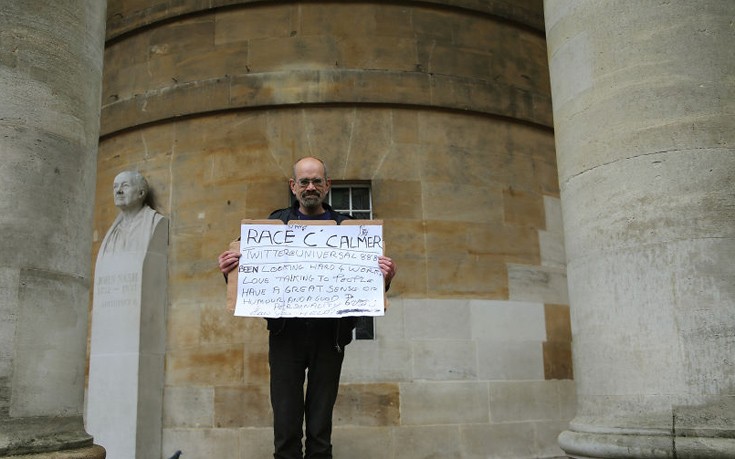 RACE "C" CALMER
TWITTER@UNIVERSAL888
BEEN LOOKING HARD 4 WORK
LOVE TALKING TO PEOPLE
HAVE A GREAT SENSE OF
HUMOUR AND A GOOD
PERSONALITY